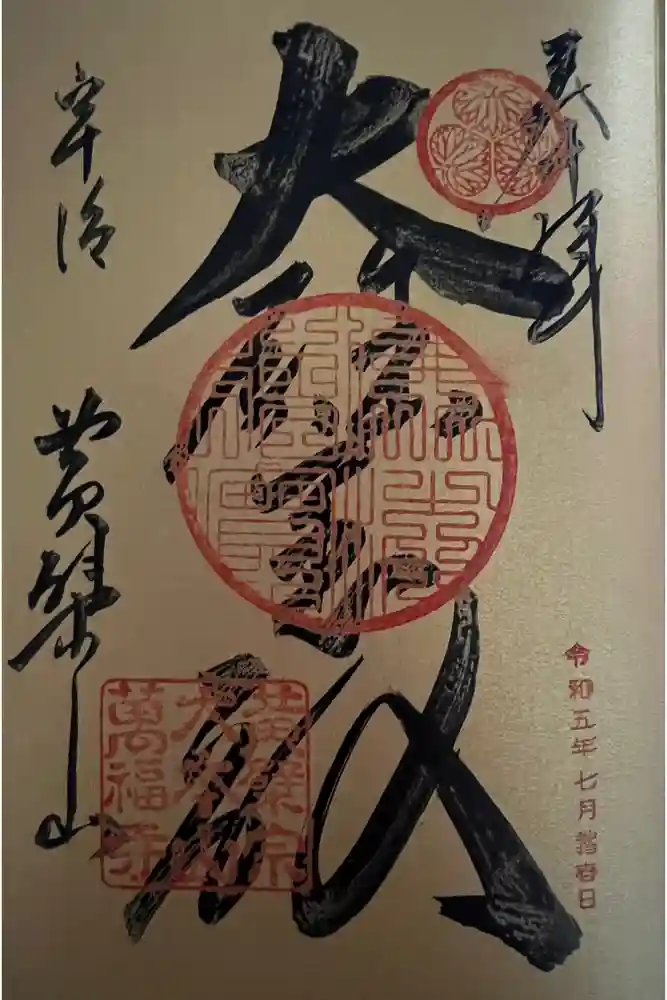 奉拝
令和五年七月
大雄寶殿
宇治
黄檗山
黄檗宗
大本山
萬福寺